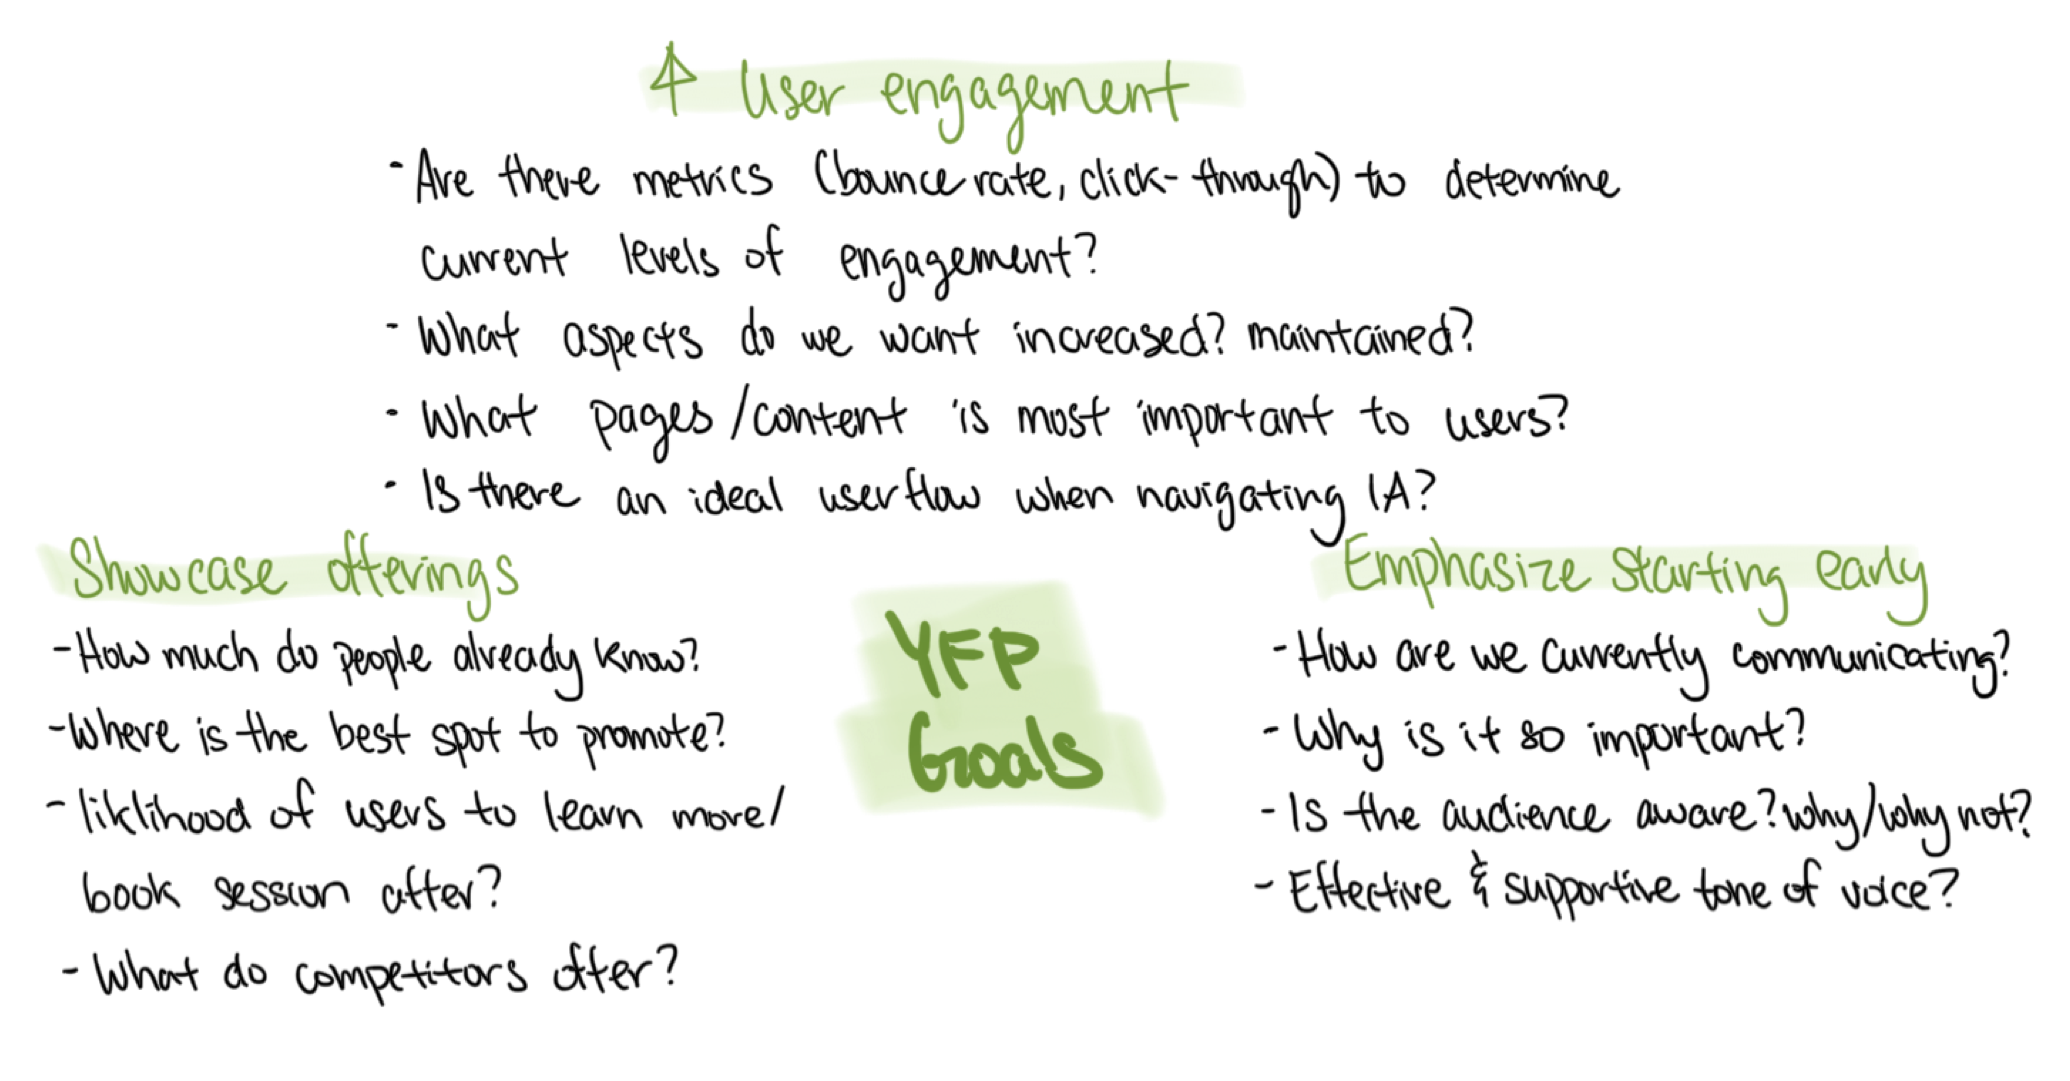 ↑ User engagement
- Are there metrics (bounce rate, click-through) to determine
current levels of engagement?
- What aspects do we want increased? maintained?
- What pages/content is most important to users?
- Is there an ideal userflow when navigating IA?
Showcase offerings
- How much do people already know?
- Where is the best spot to promote?
- liklihood of users to learn more/
book session after?
- What do competitors offer?
YFP
Goals
Emphasize starting early
- How are we currently communicating?
- Why is it so important?
- Is the audience aware? why/why not?
- Effective & supportive tone of voice?